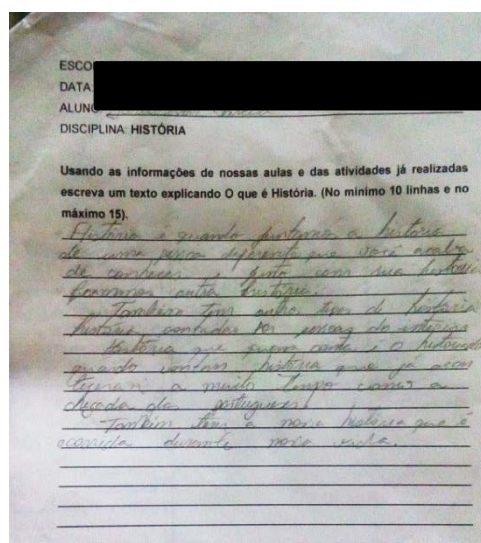 ESCO
DATA:
ALUN
DISCIPLINA: HISTÓRIA
Usando as informações de nossas aulas e das atividades já realizadas
escreva um texto explicando O que é História. (No mínimo 10 linhas e no
máximo 15).
História é quando juntamos a história
de uma pessoa diferente que você acaba
de conhecer, e junto com sua história
formamos outra história.
Também tem outro tipos de história
história contadas por pessoas do interior
História que quem conta é o historiad
quando contam história que já acon
teceram a muito tempo como a
chegada dos portugueses
Também tem a nossa história que é
ocorrida durante nossa vida.